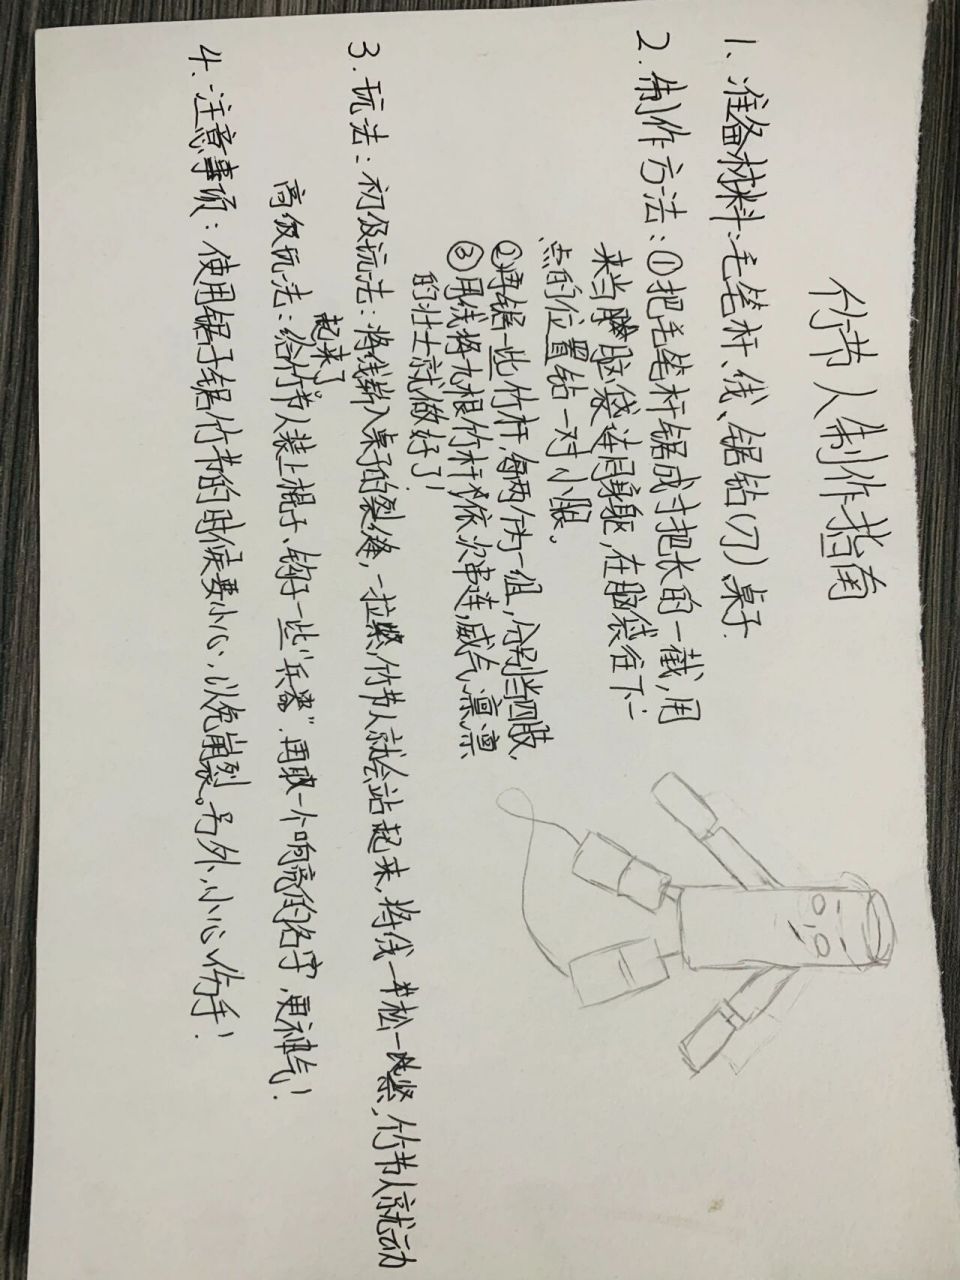 竹节人制作指南
1、准备材料:毛笔杆、线、锯钻(刀)桌子.
2.制作方法:①把毛笔杆锯成寸把长的一截,用
来当脑袋连同身躯,在脑袋往下一
点的位置钻一对小眼。
②再锯一些竹杆,每两个为一组,分别当四肢.
③用线将九根竹杆依次串连,威气凛凛
的壮士就做好了!
3.玩法:初级玩法:将线嵌入桌子的裂缝,一拉紧,竹节人就会站起来,将线一松一紧,竹节人就动
起来了。
高级玩法:给竹节人装上棍子、钩子一些“兵器”.再取一个响亮的名字,更神气!
4.注意事项:使用锯子锯竹节的时候要小心,以免崩裂。另外,小心伤手!